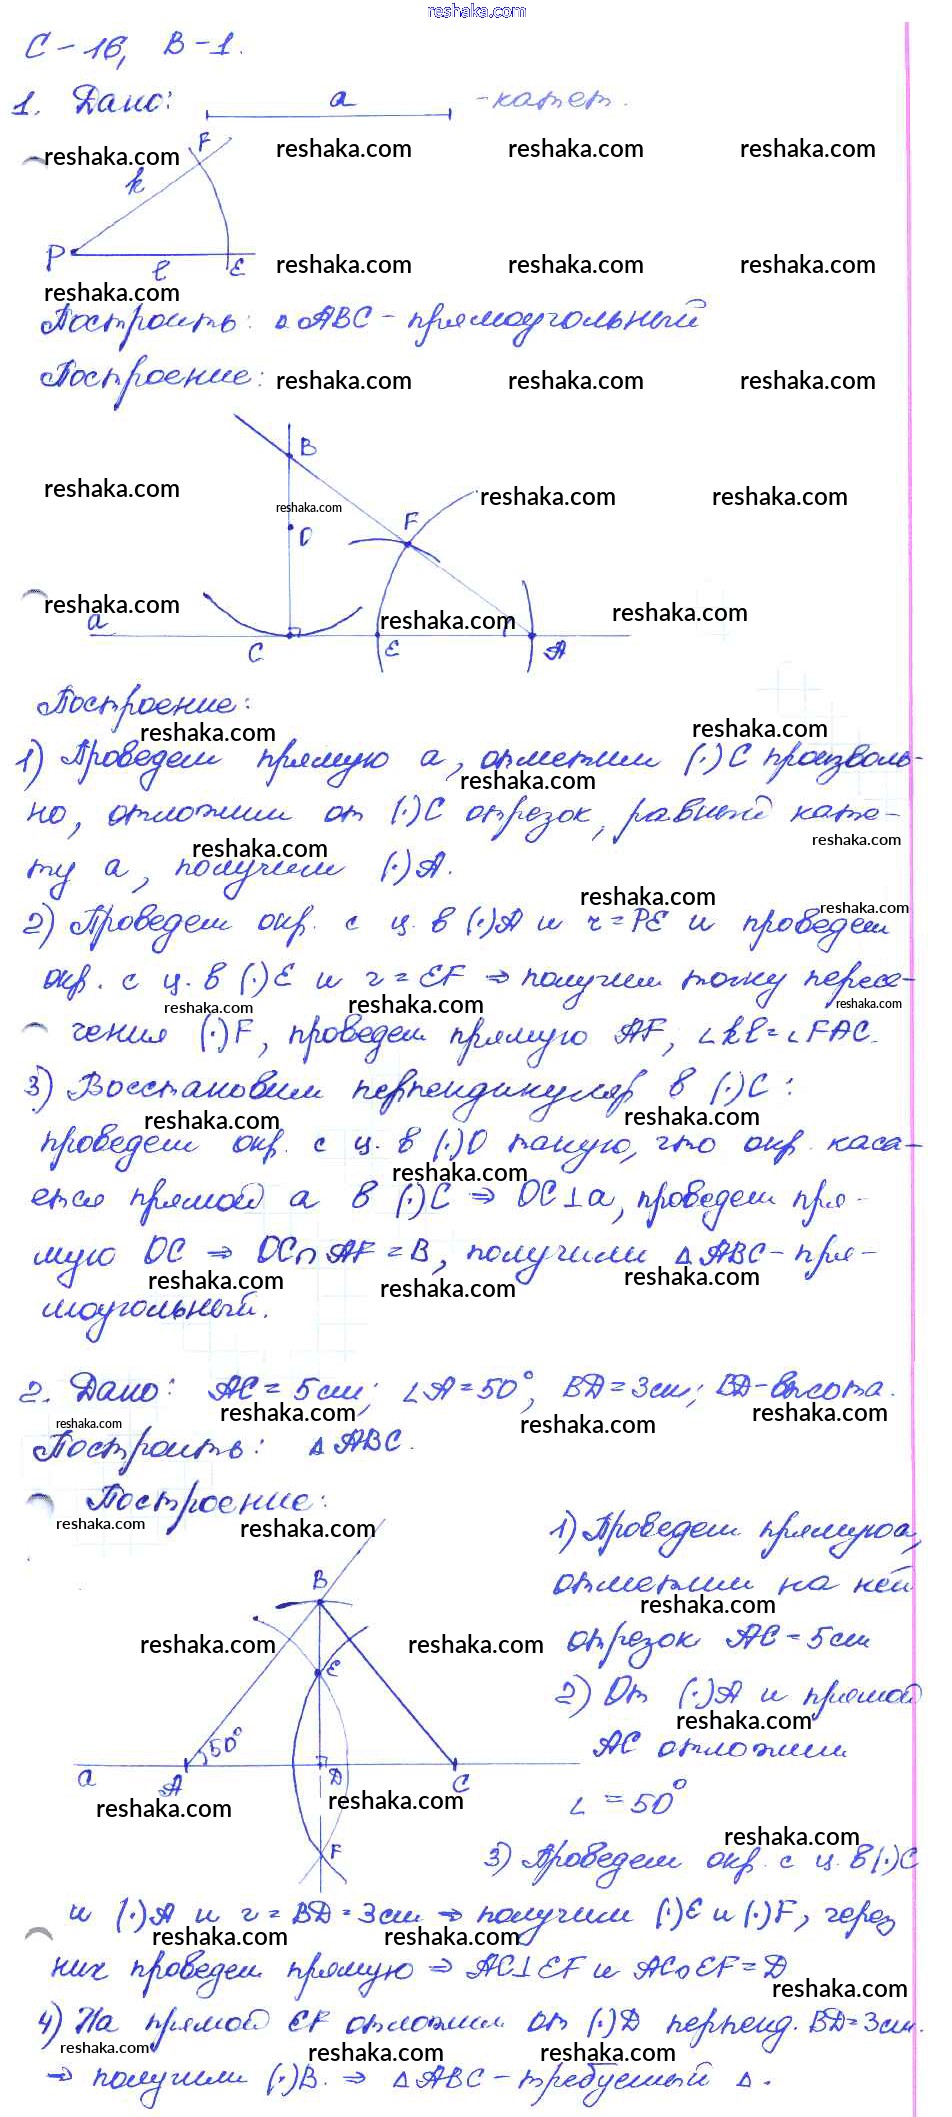 reshaka.com
С-16, В-1.
1. Дано: a - катет.
F
k
P l E
Построить: △ABC - прямоугольный
Построение:
B
O
F
a
C E A
Построение:
1) Проведем прямую a, отметим (·)C произволь-
но, отложим от (·)C отрезок, равный кате-
ту a, получим (·)A.
2) Проведем окр. с ц. в (·)A и r=PE и проведем
окр. с ц. в (·)E и r=EF ⇒ получим точку пересе-
чения (·)F, проведем прямую AF, ∠kl=∠FAC.
3) Восстановим перпендикуляр в (·)C:
проведем окр. с ц. в (·)O такую, что окр. каса-
ется прямой a в (·)C ⇒ OC⊥a, проведем пря-
мую OC ⇒ OC∩AF=B, получили △ABC-пря-
моугольный.
2. Дано: AC=5см; ∠A=50°, BD=3см; BD-высота.
Построить: △ABC.
Построение:
B
E
50°
a A D C
F
1) Проведем прямую a,
отметим на ней
отрезок AC=5см
2) От (·)A и прямой
AC отложим
∠=50°
3) Проведем окр. с ц. в (·)C
и (·)A и r=BD=3см ⇒ получим (·)E и (·)F, через
них проведем прямую ⇒ AC⊥EF и AC∩EF=D
4) На прямой EF отложим от (·)D перпенд. BD=3см.
⇒ получили (·)B. ⇒ △ABC-требуемый △.